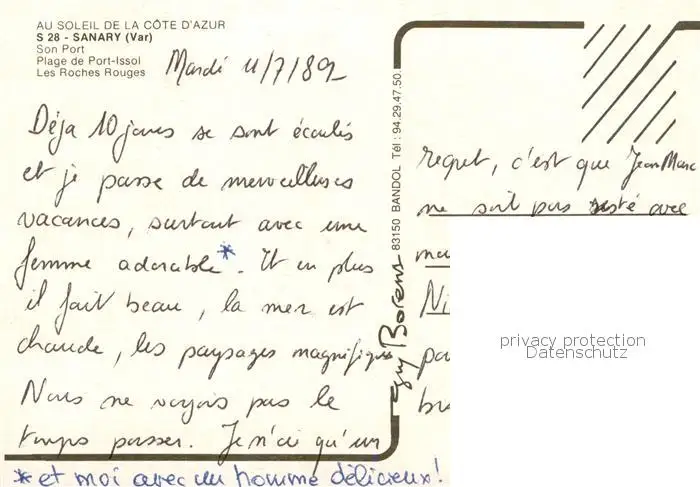 AU SOLEIL DE LA CÔTE D'AZUR
S 28 - SANARY (Var)
Son Port
Plage de Port-Issol
Les Roches Rouges
Mardi 11/7/89
Déja 10 jours se sont écoulés
et je passe de merveilleuses
vacances, surtout avec une
femme adorable*. Et en plus
il fait beau, la mer est
chaude, les paysages magnifiques
Nous ne voyons pas le
temps passer. Je n'ai qu'un
*et moi avec un homme délicieux!
83150 BANDOL Tél : 94.29.47.50
Guy Borens
regret, c'est que Jean Marc
ne soit pas resté avec
privacy protection
Datenschutz